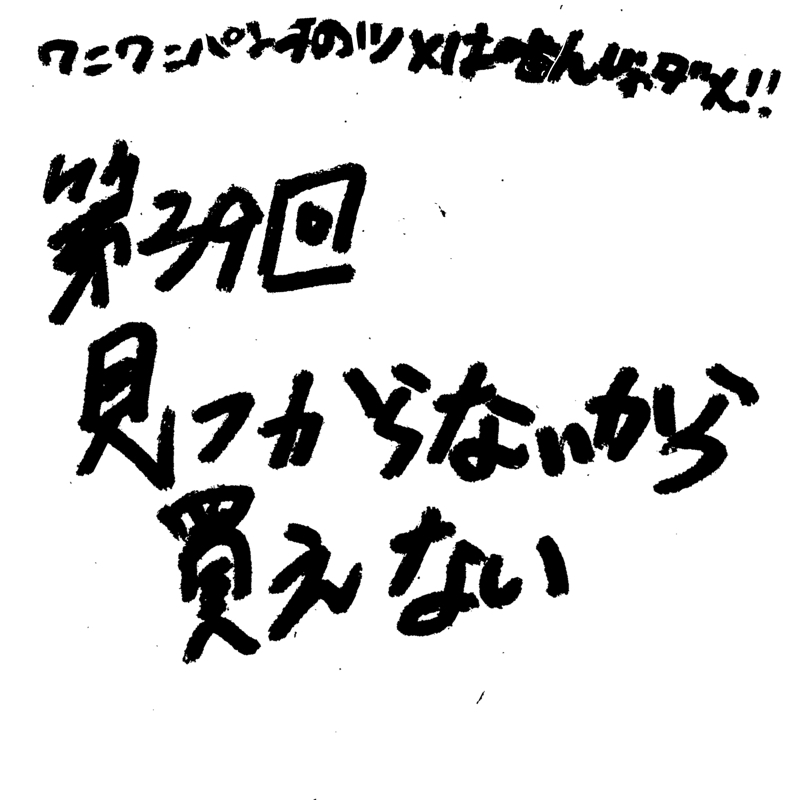 ワニワニパン子のツメは噛んじゃダメ!!
第29回
見つからないから
買えない